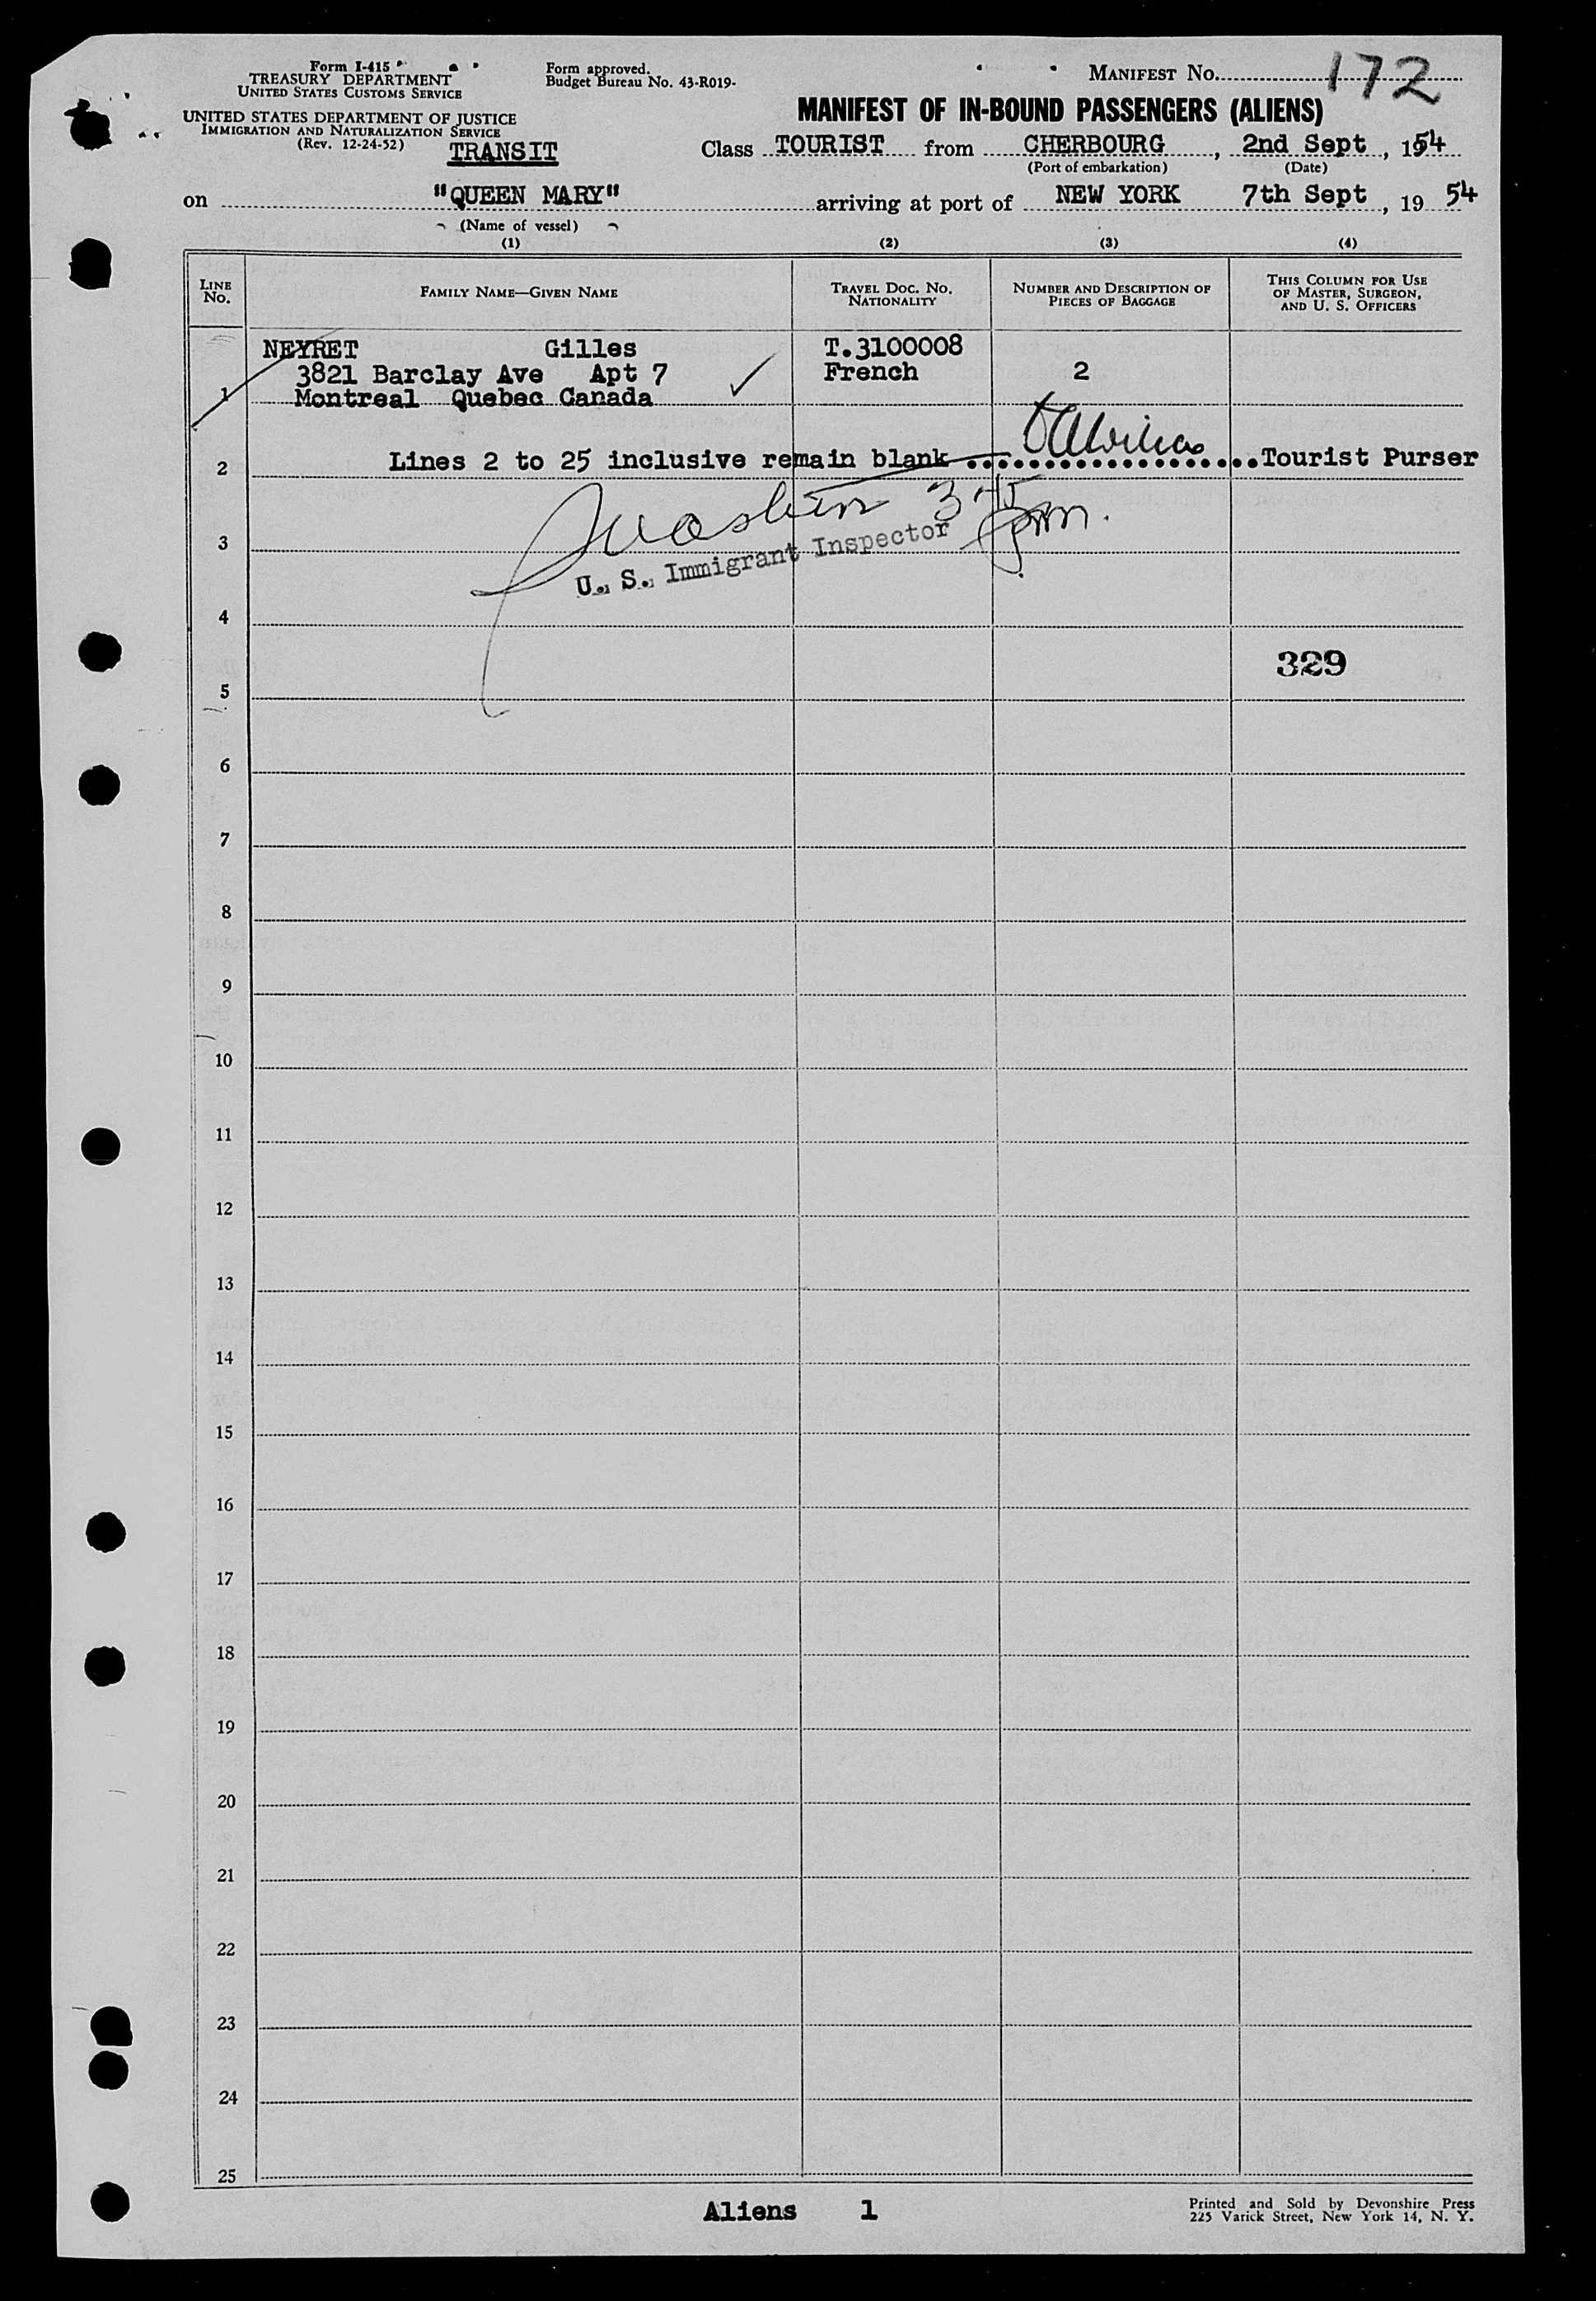 Form I-415
TREASURY DEPARTMENT
UNITED STATES CUSTOMS SERVICE
UNITED STATES DEPARTMENT OF JUSTICE
IMMIGRATION AND NATURALIZATION SERVICE
(Rev. 12-24-52)
TRANSIT
Form approved.
Budget Bureau No. 43-R019-
MANIFEST No. 172
MANIFEST OF IN-BOUND PASSENGERS (ALIENS)
Class TOURIST from CHERBOURG, 2nd Sept, 1954
(Port of embarkation) (Date)
on "QUEEN MARY" arriving at port of NEW YORK 7th Sept, 19 54
(Name of vessel)
(1) (2) (3) (4)
LINE No. FAMILY NAME—GIVEN NAME TRAVEL DOC. NO. NATIONALITY NUMBER AND DESCRIPTION OF PIECES OF BAGGAGE THIS COLUMN FOR USE OF MASTER, SURGEON, AND U. S. OFFICERS
NEYRET Gilles T.3100008
3821 Barclay Ave Apt 7 French 2
1 Montreal Quebec Canada
2 Lines 2 to 25 inclusive remain blank Tourist Purser
3 45 pm.
3
U. S. Immigrant Inspector
4
329
5
6
7
8
9
10
11
12
13
14
15
16
17
18
19
20
21
22
23
24
25
Aliens 1
Printed and Sold by Devonshire Press
225 Varick Street, New York 14, N. Y.